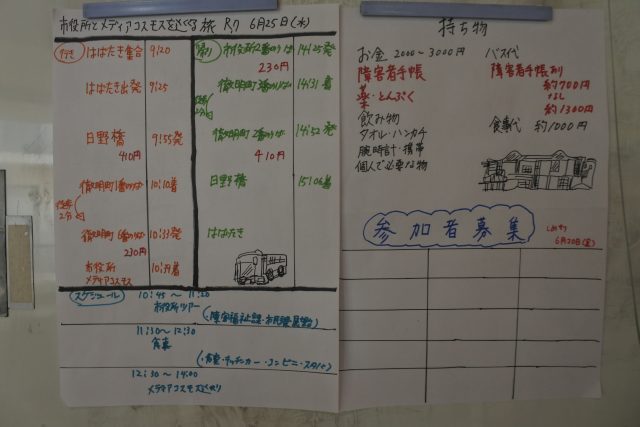 市役所とメディアコスモスを巡る旅 R7 6月25日(水)
行き
はばたき集合 9:20
はばたき出発 9:25
日野橋 9:55発
410円
徹明町1番のりば 10:10着
徒歩2分
徹明町6番のりば 10:33発
210円
市役所
メディアコスモス
帰り
市役所2番のりば 14:25発
230円
徹明町 14:31着
徒歩2分
徹明町2番のりば 14:52発
410円
日野橋 15:06着
はばたき
スケジュール
10:45〜11:20
市役所ツアー
(・障害福祉課・市民課・展望台)
11:30〜12:30
食事
(・食堂・キッチンカー・コンビニ・スタバ)
12:30〜14:00
メディアコスモス巡り
持ち物
お金 2000〜3000円
障害者手帳
薬・とんぷく
飲み物
タオル・ハンカチ
腕時計・携帯
個人で必要な物
バス代
障害者手帳あり
約700円
なし
約1300円
食事代 約1000円
参加者募集
しめきり
6月20日(金)